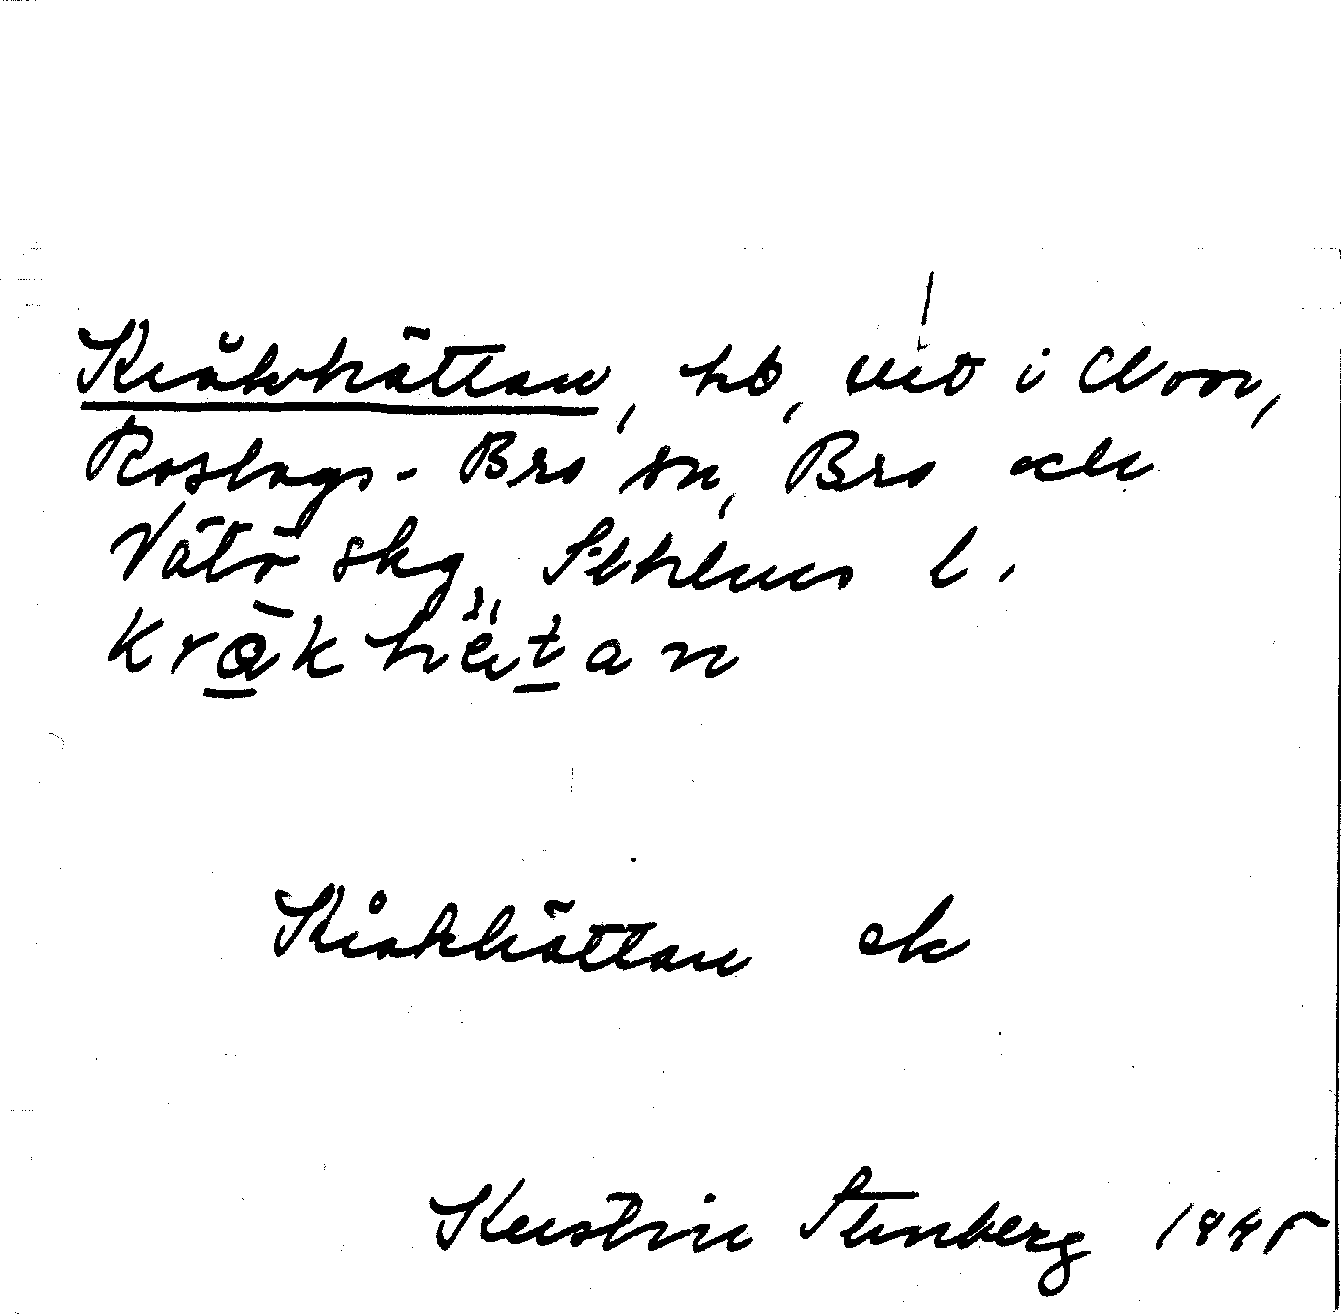 Kråkhättan, hb,      i      ,
Roslags-Bro sn, Bro och
Vätö skg, Sthlms l.
kråkhätan
Kråkhättan ek
Kerstin Stenberg 1945